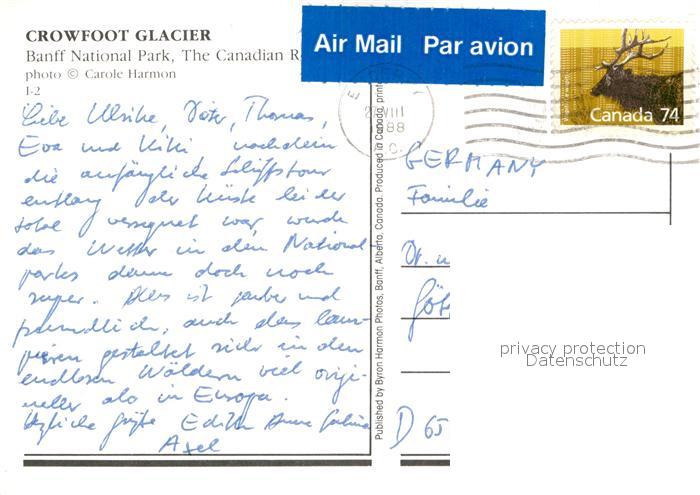 CROWFOOT GLACIER
Banff National Park, The Canadian R
photo © Carole Harmon
I-2
Air Mail Par avion
Canada 74
VIII
88
Liebe Ulrike, Peter, Thomas,
Eva und Kiki nachdem
die anfängliche Schiffstour
entlang der Küste leider
total verregnet war, wurde
das Wetter in den National
parks dann doch noch
super. Alles ist sauber und
freundlich, auch das Cam-
pieren gestaltet sich in den
endlosen Wäldern viel origi-
neller als in Europa.
Herzliche Grüße Edith Anne
Axel
Published by Byron Harmon Photos, Banff, Alberta, Canada. Produced in Canada, print
GERMANY
Familie
Dr. u
Göt
D 65
privacy protection
Datenschutz